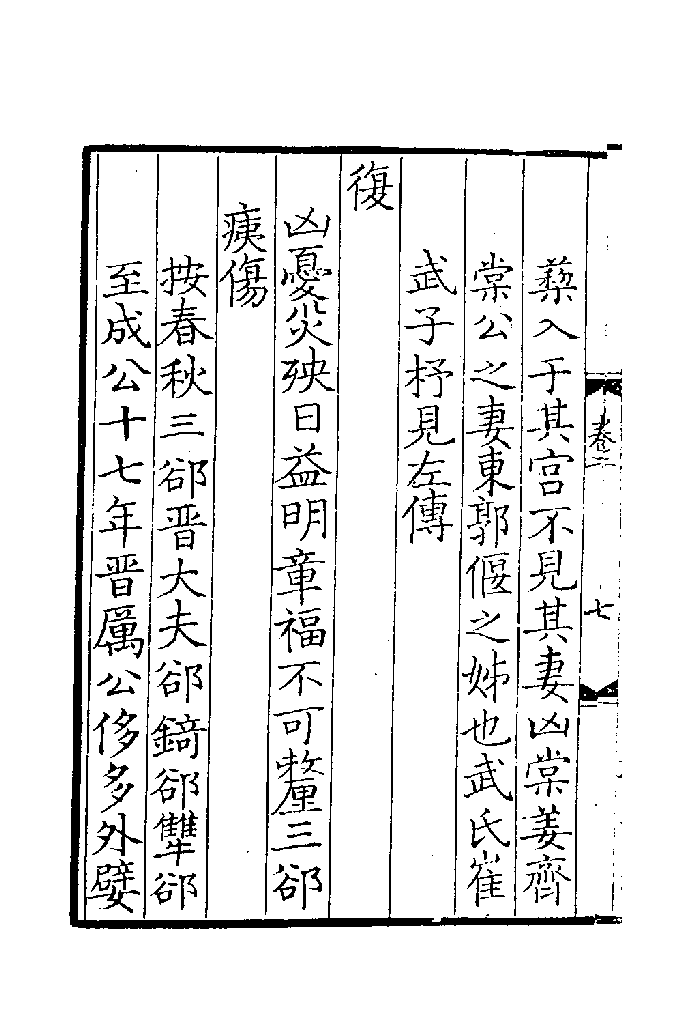 蔾入于其宫不見其妻凶棠姜齊
棠公之妻東郭偃之姊也武氏崔
武子杼見左傳
復
凶憂災殃日益明章禍不可釐三郤
痍傷
按春秋三郤晋大夫郤錡郤犨郤
至成公十七年晋厲公侈多外嬖
卷二
七